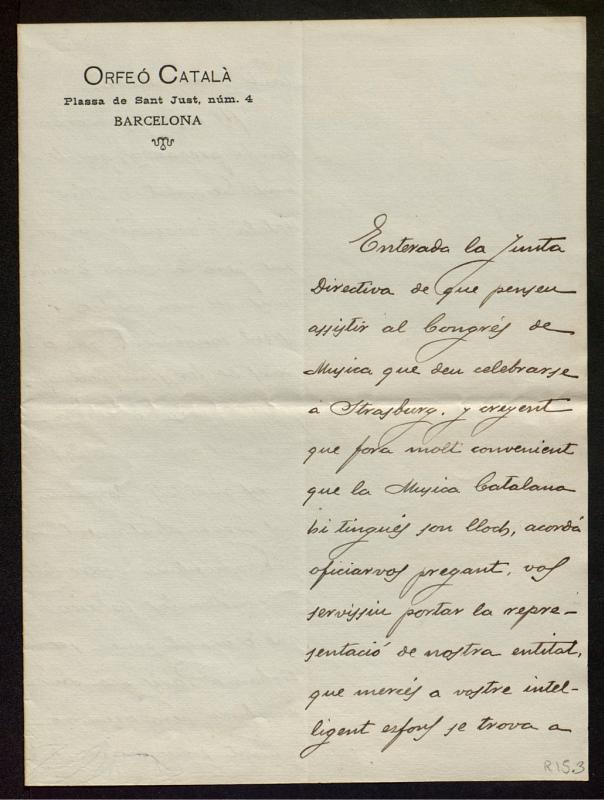 ORFEÓ CATALÀ
Plassa de Sant Just, núm. 4
BARCELONA
Enterada la Junta
Directiva de que penseu
assistir al Congrés de
Musica que deu celebrarse
á Strasburg, y creyent
que fora molt convenient
que la Musica Catalana
hi tingués son lloch, acordá
oficiarvos pregant, vos
servissiu portar la repre-
sentació de nostra entitat,
que mercés a vostre intel-
ligent esfors se trova a
R15.3